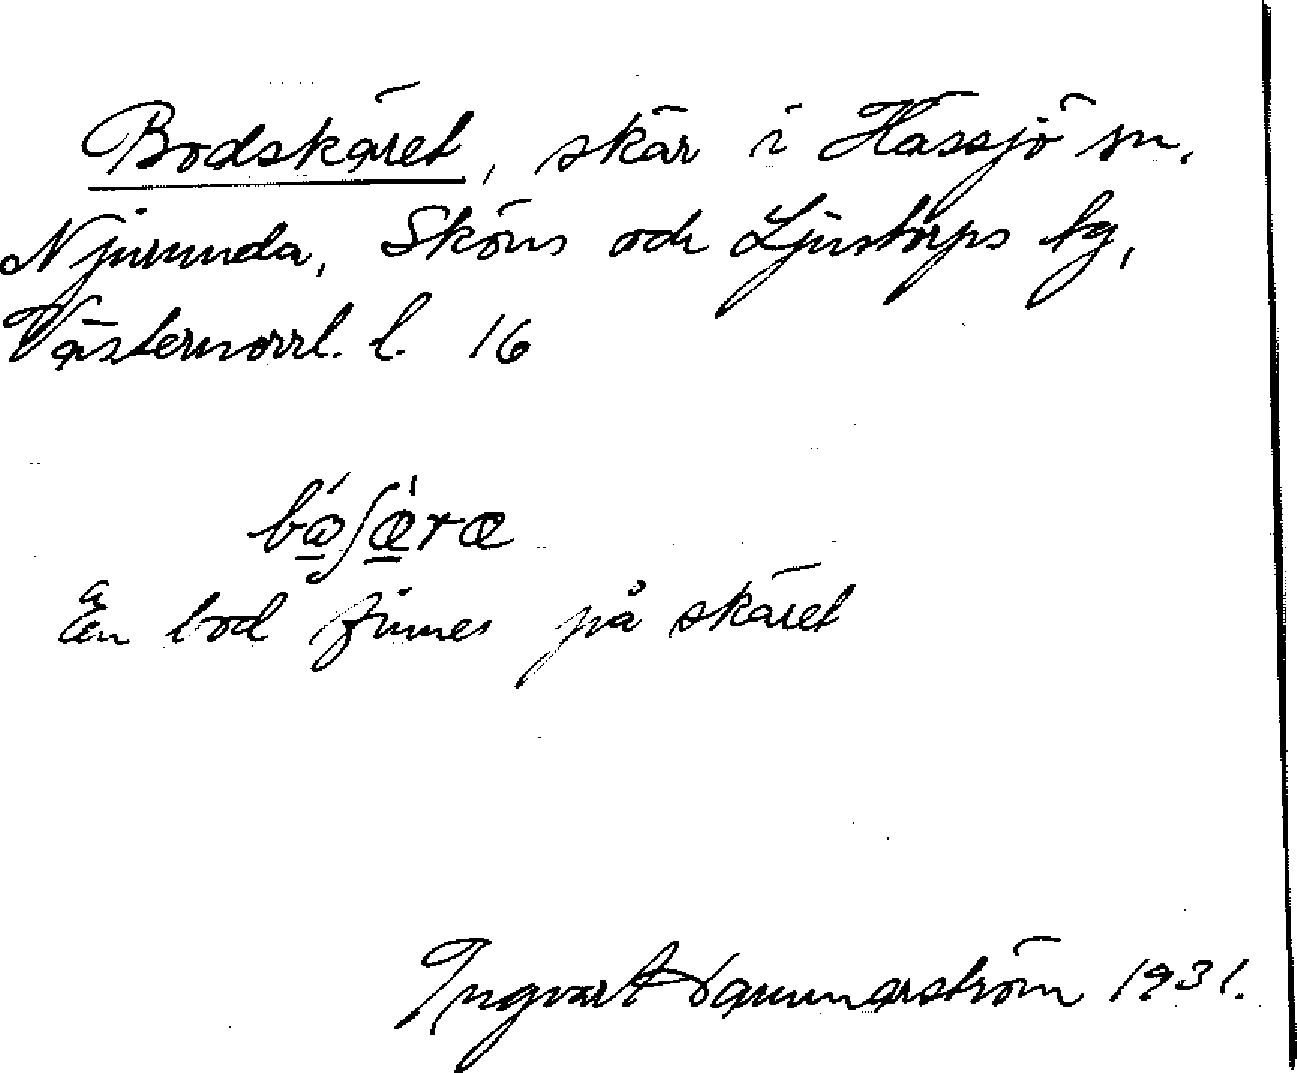 Bodskäret, skär i Hässjö sn.
Njurunda, Sköns och Ljustorps tg,
Västernorrl. l. 16
En bod finnes på skäret
Ingvart 1931.